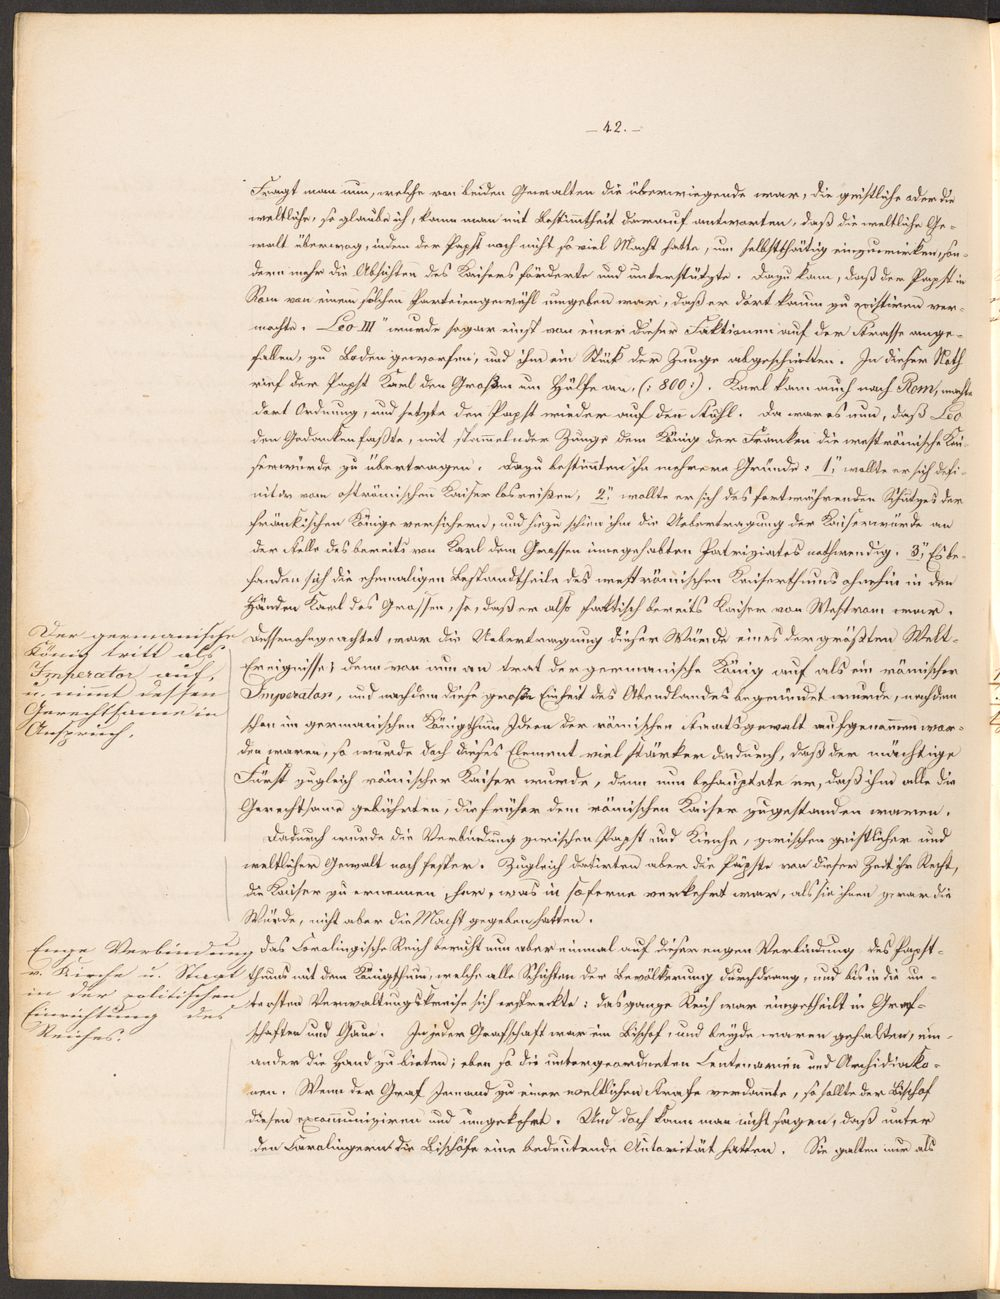 – 42. –
Fragt man nun, welche von beiden Gewalten die überwiegende war, die geistliche oder die
weltliche, so glaube ich, kann man mit Bestimmtheit darauf antworten, daß die weltliche Ge-
walt überwog, indem der Papst noch nicht so viel Macht hatte, um selbstthätig einzuwirken, son-
dern mehr die Absichten des Kaisers förderte und unterstützte. Dazu kam, daß der Papst in
Rom von einem solchen Parteiengewühl umgeben war, daß er dort kaum zu existiren ver-
mochte. Leo III" wurde sogar einst von einer dieser Faktionen auf der Strasse ange-
fallen, zu Boden geworfen, und ihm ein Stük der Zunge abgeschnitten. In dieser Noth
rief der Papst Karl den Großen um Hülfe an, (: 800 :). Karl kam auch nach Rom, machte
dort Ordnung, und setzte den Papst wieder auf den Stuhl. Da war es nun, daß Leo
den Gedanken faßte, mit stammelnder Zunge dem König der Franken die weströmische Kai-
serwürde zu übertragen. Dazu bestimmten ihn mehrere Gründe: 1", wollte er sich defi-
nitiv vom oströmischen Kaiser losreißen, 2", wollte er sich des fortwährenden Schutzes der
fränkischen Könige versichern, und hiezu schien ihm die Uebertragung der Kaiserwürde an
der Stelle des bereits von Karl dem Grossen innegehabten Patriziates nothwendig. 3", Es be-
fanden sich die ehemaligen Bestandtheile des weströmischen Kaiserthums ohnehin in den
Händen Karl des Grossen, so, daß er also faktisch bereits Kaiser von Westrom war.
Der germanische
König tritt als
Imperator auf,
u. nimmt dessen
Gerechtsame in
Anspruch.
Dessenohngeachtet war die Uebertragung dieser Würde eines der größten Welt-
Ereignisse; denn von nun an trat der germanische König auf als ein römischer
Imperator, und nachdem diese große Einheit des Abendlandes begründet wurde, nachdem
schon im germanischen Königthum Ideen der römischen Staatsgewalt aufgenommen wor-
den waren, so wurde doch dieses Element viel stärker dadurch, daß der mächtige
Fürst zugleich römischer Kaiser wurde, denn nun behauptete er, daß ihm alle die
Gerechtsame gebührten, die früher dem römischen Kaiser zugestanden waren.
Dadurch wurde die Verbindung zwischen Papst und Kirche, zwischen geistlicher und
weltlicher Gewalt noch fester. Zugleich datirten aber die Päpste von dieser Zeit ihr Recht,
die Kaiser zu ernennen, her, was in soferne verkehrt war, als sie ihnen zwar die
Würde, nicht aber die Macht gegeben hatten.
Enge Verbindung
v. Kirche u. Staat
in der politischen
Einrichtung des
Reiches.
Das Carolingische Reich beruht nun aber einmal auf dieser engen Verbindung des Papst-
thums mit dem Königthum, welche alle Schichten der Bevölkerung durchdrang, und bis in die un-
tersten Verwaltungskreise sich erstreckte: das ganze Reich war eingetheilt in Graf-
schaften und Gaue. In jeder Grafschaft war ein Bischof, und beyde waren gehalten, ein-
ander die Hand zu bieten; eben so die untergeordneten Centenarien und Archidiako-
nen. Wenn der Graf Jemand zu einer weltlichen Strafe verdammte, so sollte der Bischof
diesen excommuniziren und umgekehrt. Und doch kann man nicht sagen, daß unter
den Carolingern die Bischöfe eine bedeutende Autorität hatten. Sie galten nur als